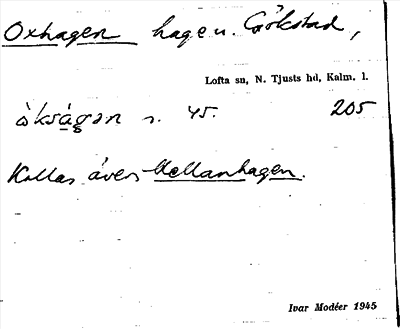 Oxhagen hage u. Gökstad,
Lofta sn, N. Tjusts hd, Kalm. l.
òkságən n. 45. 205
Kallas även Mellanhagen.
Ivar Modéer 1945